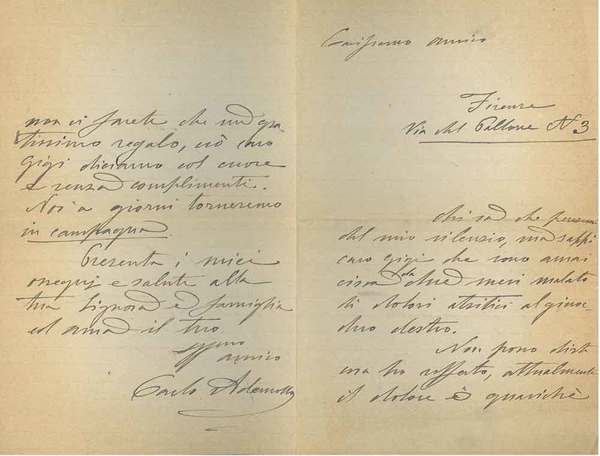 Carissimo amico
Firenze
Via del Pallone N 3
Chi sad che penserai
del mio silenzio, mad sappi
caro gigi che sono omai
circad da dued mesi malato
di dolori artritici al ginoc
chio destro.
Non posso dirti
cosa ho sofferto, attualmente
il dolore è qualchè
non ci farete che und gra-
tissimo regalo, ciò caro
gigi diciamo col cuore
e senzad complimenti.
Noi a giorni torneremo
in campagnad.
Presenta i miei
ossequj e saluti alla
tua Signorad e famiglia
ed amad il tuo
affmo
amico
Carlo Ademollo